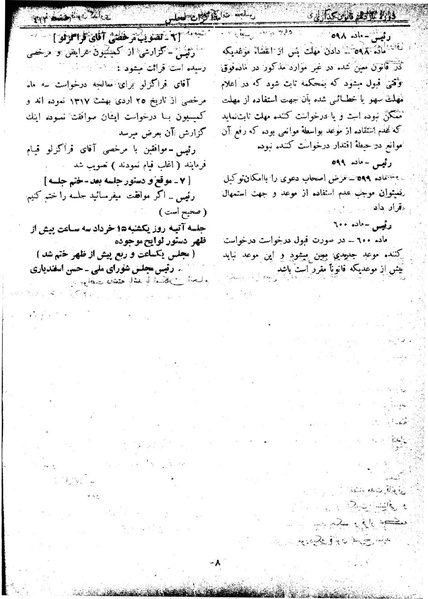 مذاکرات مجلس
رئیس - ماده ۵۹۸
ماده ۵۹۸ - دادن مهلت پس از انقضاء موعدیکه
در قانون معین شده در غیر موارد مذکور در ماده فوق
وقتی قبول میشود که بمحکمه ثابت شود که در اعلام
مهلت سهو یا خطائی شده یا آن جهت استفاده از مهلت
ممکن نبوده است و یا درخواست کننده مهلت ثابت نماید
که عدم استفاده از موعد بواسطهٔ موانعی بوده که رفع آن
موانع در حیطهٔ اقتدار درخواست کننده نبوده
رئیس - ماده ۵۹۹
ماده ۵۹۹ - مرض اصحاب دعوی را با امکان توکیل
نمیتوان موجب عدم استفاده از موعد و جهت استمهال
قرار داد
رئیس - ماده ۶۰۰
ماده ۶۰۰ - در صورت قبول درخواست درخواست
کننده موعد جدیدی معین میشود و این موعد نباید
بیش از موعدیکه قانوناً مقرر است باشد
[ ۶ - تصویب مرخصی آقای قراگزلو ]
رئیس - گزارشی از کمیسیون عرایض و مرخصی
رسیده است قرائت میشود :
آقای قراگزلو برای معالجه درخواست سه ماه
مرخصی از تاریخ ۲۵ اردی بهشت ۱۳۱۷ نموده اند و
کمیسیون با درخواست ایشان موافقت نموده اینک
گزارش آن بعرض میرسد
رئیس - موافقین با مرخصی آقای قراگزلو قیام
فرمایند ( اغلب قیام نمودند ) تصویب شد
[ ۷ - موقع و دستور جلسه بعد - ختم جلسه ]
رئیس - اگر موافقت میفرمائید جلسه را ختم کنیم
( صحیح است )
جلسه آتیه روز یکشنبه ۱۵ خرداد سه ساعت پیش از
ظهر دستور لوایح موجوده
( مجلس یکساعت و ربع پیش از ظهر ختم شد )
رئیس مجلس شورای ملی - حسن اسفندیاری
۸-